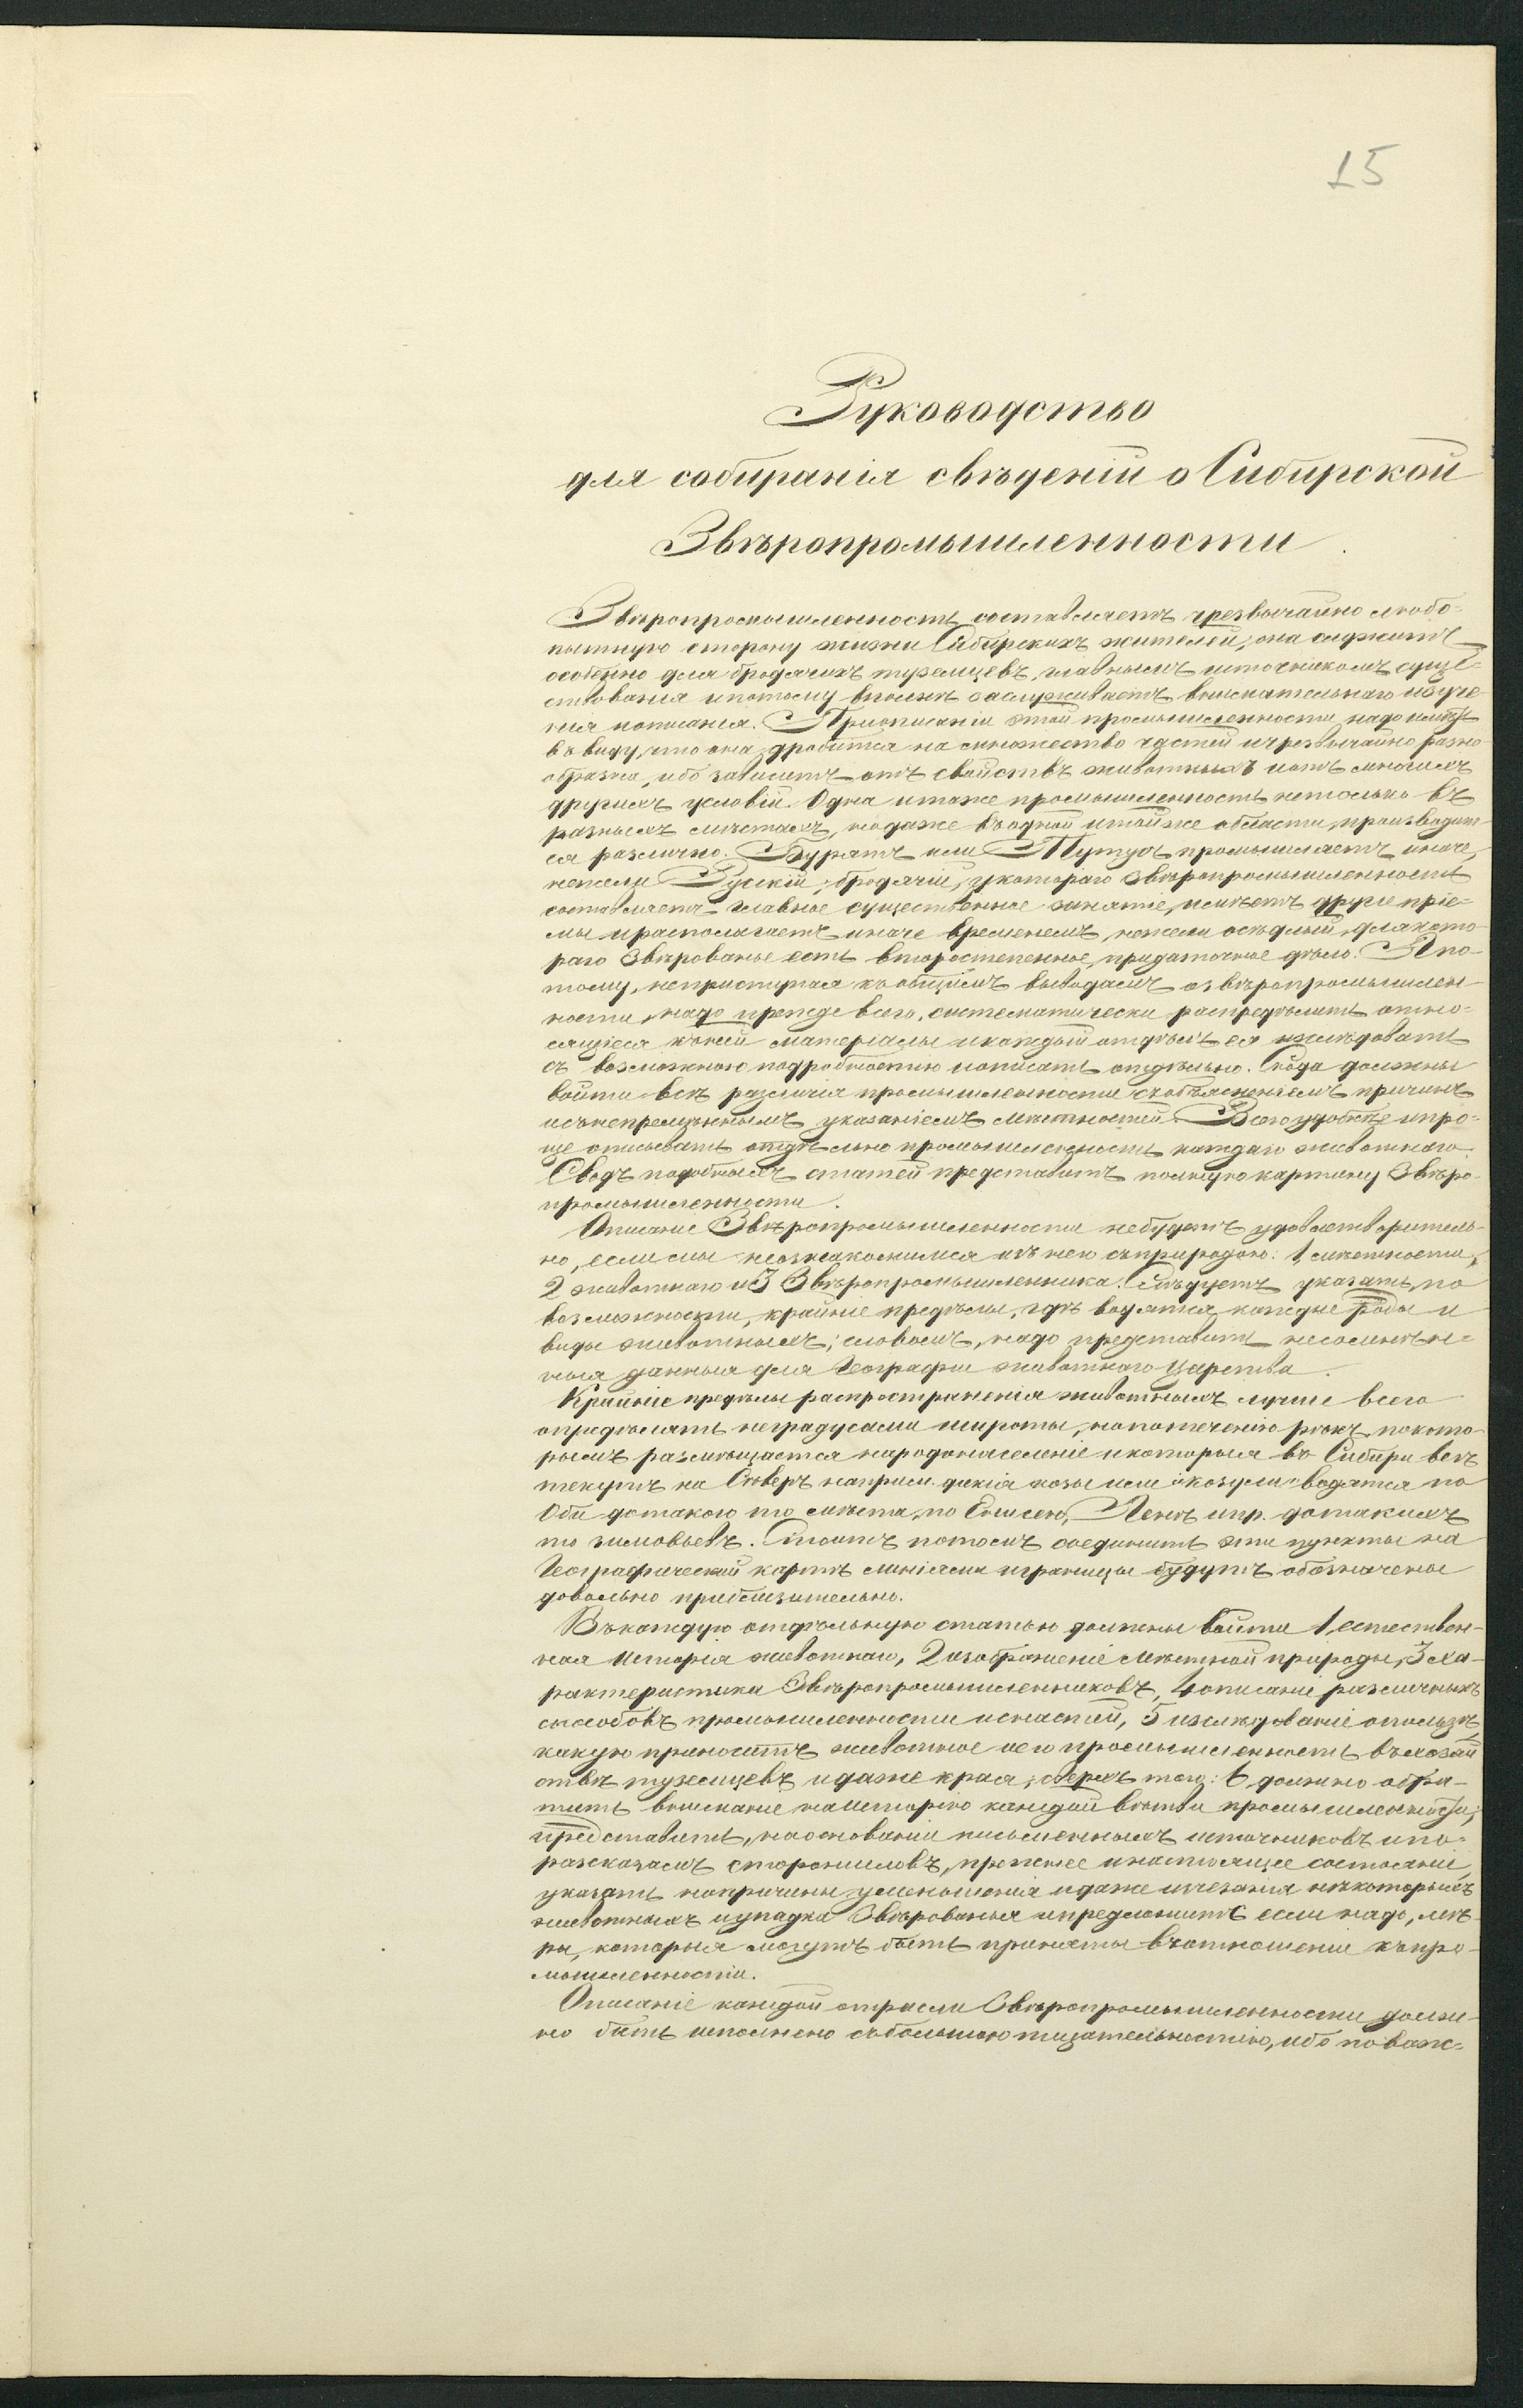 15
Руководство
для собиранія свѣденій о Сибирской
Звѣропромышленности.
Звѣропромышленность составляетъ чрезвычайно любо-
пытную сторону жизни Сибирскихъ жителей, она служитъ
особенно для бродячихъ туземцевъ, главнымъ источникомъ суще-
ствованія и потому вполнѣ заслуживаетъ внимательнаго изуче-
нія и описанія. При описаніи этой промышленности надо имѣть
въ виду, что она дробится на множество частей и чрезвычайно разно-
образна, ибо зависитъ отъ свойствъ животныхъ и отъ многихъ
другихъ условій. Одна и таже промышленность не только въ
разныхъ мѣстахъ, но даже въ одной и той же области, производит-
ся различно. Бурятъ или Тунгусъ промышляетъ иначе,
нежели Русскій; бродячій, у котораго Звѣропромышленность
составляетъ главное существенное занятіе, имѣетъ другіе пріе-
мы и располагаетъ иначе временемъ, нежели осѣдлый, для кото-
раго Звѣрованье есть второстепенное, придаточное дѣло. А по-
тому, не приступая къ общимъ выводамъ о звѣропромышлен-
ности, надо прежде всего, систематически распредѣлить отно-
сящіеся къ ней матеріалы и каждый отдѣлъ ея изслѣдовать
съ возможною подробностію и описать отдѣльно. Сюда должны
войти всѣ различія промышленности съ объясненіемъ причинъ
и съ непремѣннымъ указаніемъ мѣстностей. Всего удобнѣе и про-
ще описывать отдѣльно промышленность каждаго животнаго.
Сводъ подобныхъ статей представитъ полную картину Звѣро-
промышленности.
Описаніе Звѣропромышленности не будетъ удовлетворитель-
но, если мы не ознакомимся изъ него съ природою: 1, мѣстности,
2 животнаго и 3 Звѣропромышленника. Слѣдуетъ указать, по
возможности, крайніе предѣлы, гдѣ водятся каждые роды и
виды животныхъ; словомъ, надо представить несомнѣн-
ныя данныя для Географіи животнаго царства.
Крайніе предѣлы распространенія животныхъ лучше всего
опредѣлять не градусами широты, но по теченію рѣкъ, по кото-
рымъ размѣщается народонаселеніе и которыя въ Сибири всѣ
текутъ на Сѣверъ наприм. дикія козы или козули водятся по
Оби до такого то мѣста, по Енисею, Ленѣ и пр. до такихъ
то зимовьевъ. Стоитъ потомъ соединить эти пункты на
Географической картѣ линіями и границы будутъ обозначены
довольно приблизительно.
Въ каждую отдѣльную статью должны войти 1, естествен-
ная Исторія животнаго, 2 изображеніе мѣстной природы, 3 ха-
рактеристика Звѣропромышленниковъ, 4 описаніе различныхъ
способовъ промышленности и снастей, 5 изслѣдованіе о пользѣ,
какую приноситъ животное и его промышленность въ хозяй-
ствѣ туземцевъ и даже края; сверхъ того: 6, должно обра-
тить вниманіе на Исторію каждой вѣтви промышленности;
представить, на основаніи письменныхъ источниковъ и по
разсказамъ старожиловъ, прежнее и настоящее состояніе,
указать на причины уменьшенія и даже изчезанія нѣкоторыхъ
животныхъ и упадка Звѣрованья и предложить если надо, мѣ-
ры, которыя могутъ быть приняты въ отношеніи къ про-
мышленности.
Описаніе каждой отрасли Звѣропромышленности долж-
но быть исполнено съ большою тщательностію, ибо по важ-